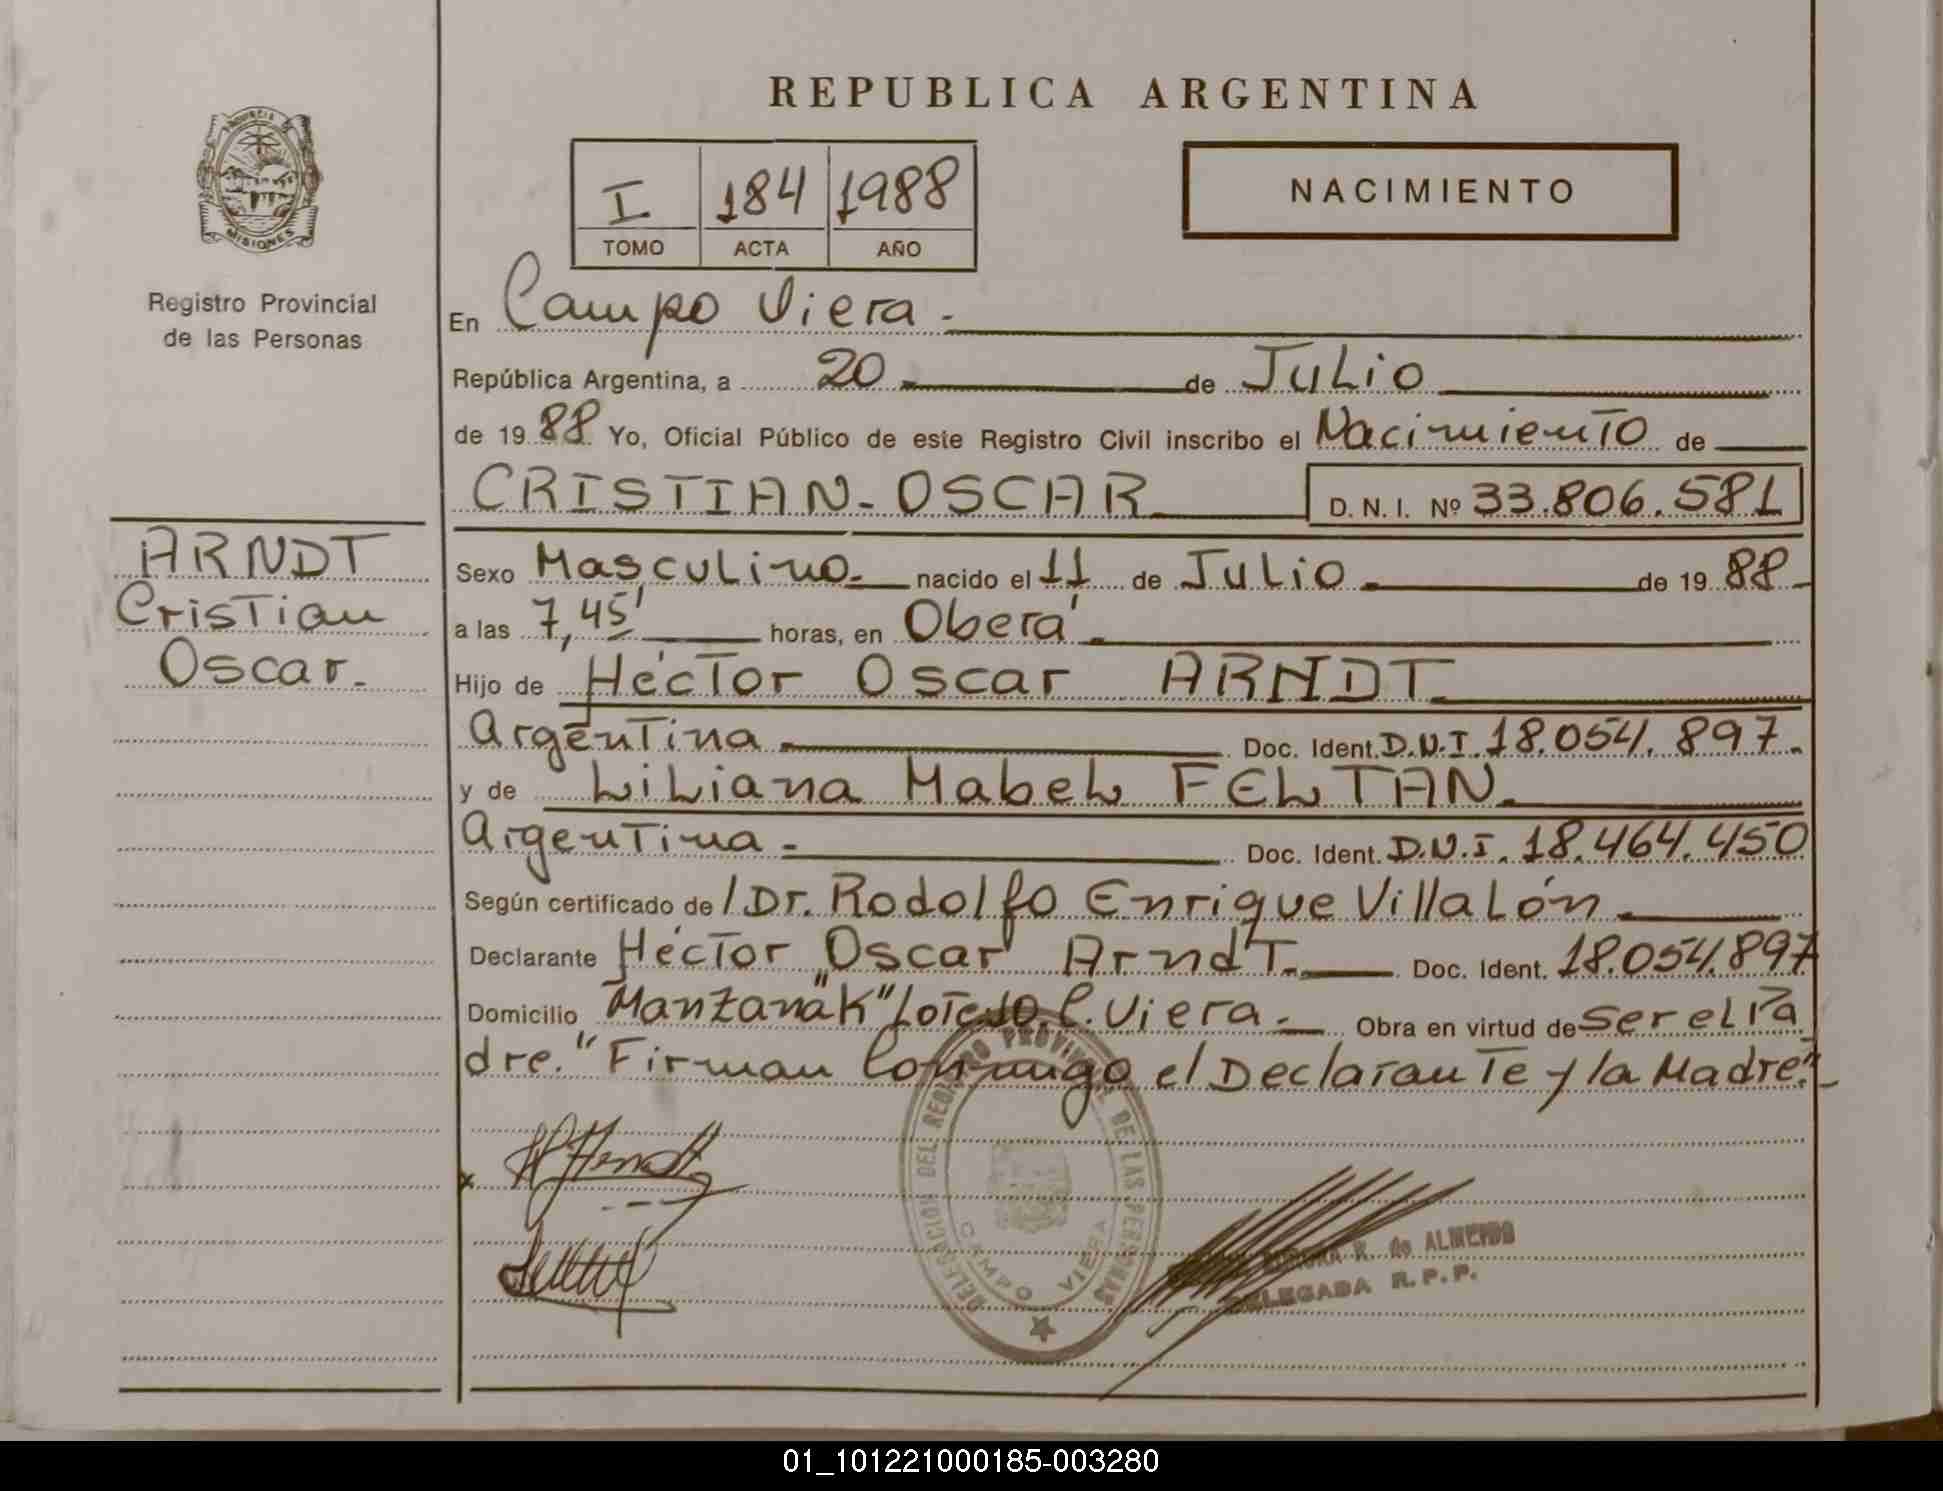 REPUBLICA ARGENTINA
PROVINCIA DE
MISIONES
Registro Provincial
de las Personas
I 184 1988
TOMO ACTA AÑO
NACIMIENTO
ARNDT
Cristian
Oscar.
En Campo Viera.
República Argentina, a 20 de Julio
de 19 88 Yo, Oficial Público de este Registro Civil inscribo el Nacimiento de
CRISTIAN-OSCAR D. N. I. Nº 33.806.581
Sexo Masculino. nacido el 11 de Julio. de 19 88-
a las 7,45' horas, en Oberá.
Hijo de Héctor Oscar ARNDT
Argentina Doc. Ident. D.N.I. 18.054.897.
y de Liliana Mabel FELTAN.
Argentina- Doc. Ident. D.N.I. 18.464.450
Según certificado de / Dr. Rodolfo Enrique Villalón
Declarante Héctor Oscar Arndt. Doc. Ident. 18.054.897
Domicilio Manzana "K" Lote 10. C. Viera. Obra en virtud de Ser el Pa
dre. "Firman Conmigo el Declarante y la Madre."
DELEGACION DEL REGISTRO PROVINCIAL DE LAS PERSONAS
CAMPO VIERA
R. de ALMEIDO
DELEGADA R.P.P.
01_101221000185-003280